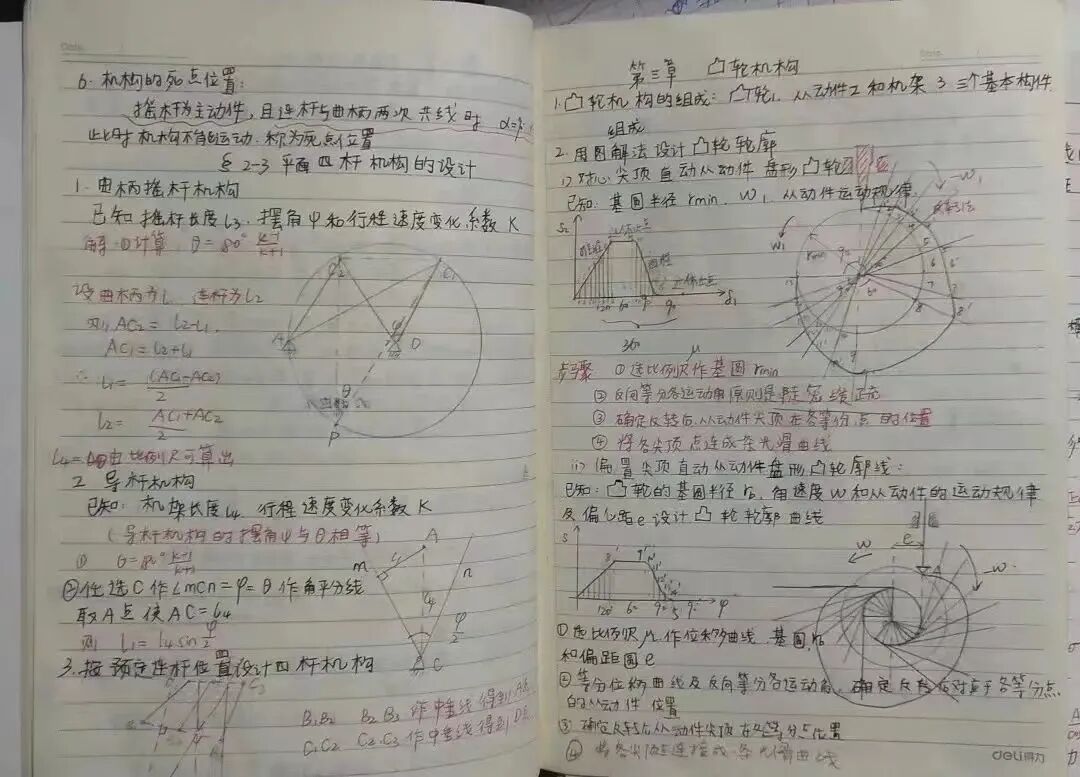 6. 机构的死点位置:
摇杆为主动件,且连杆与曲柄两次共线时
此时机构不能运动.称为死点位置
§ 2-3 平面四杆机构的设计
1. 曲柄摇杆机构
已知摇杆长度L3、摆角φ和行程速度变化系数K
解 ①计算 θ=180° K-1/K+1
设曲柄为L1 连杆为L2
则 AC2 = L2-L1
AC1 = L2+L1
∴ L1 = (AC1-AC2)/2
L2 = AC1+AC2/2
由比例尺可算出
A
C2
C1
D
θ
P
2 导杆机构
已知: 机架长度L4、行程速度变化系数K
(导杆机构的摆角φ与θ相等)
① θ=180° K-1/K+1
②任选C作∠mCn=φ=θ作角平分线
取A点使AC=L4
则 L1=L4 sin φ/2
m
A
n
L4
φ/2
C
3.按预定连杆位置设计四杆机构
B1B2 B2B3 作中垂线得到A点
C1C2 C2C3 作中垂线得到D点
第三章 凸轮机构
1.凸轮机构的组成: 凸轮1、从动件2和机架3 三个基本构件
组成
2. 用图解法设计凸轮轮廓
i) 对心尖顶自动从动件盘形凸轮
已知: 基圆半径rmin、W1、从动件运动规律
S2
360
μ
W1
rmin
-W1
步骤 ①选比例尺作基圆rmin
②反向等分各运动角原则是
③确定反转后.从动件尖顶在各等份点的位置
④将各尖顶点连成条光滑曲线
ii)偏置尖顶自动从动件盘形凸轮廓线:
已知:凸轮的基圆半径r0、角速度W和从动件的运动规律
及偏心距e设计凸轮轮廓曲线
S
φ
W
e
A
-W
①选比例尺μ作位移曲线、基圆r0
和偏距圆e
②等分位移曲线及反向等分各运动角,确定反转后对应于各等分点
的从动件位置
③确定反转后从动件尖顶在各等分点位置
④将各尖顶点连接成一条光滑曲线
deli得力